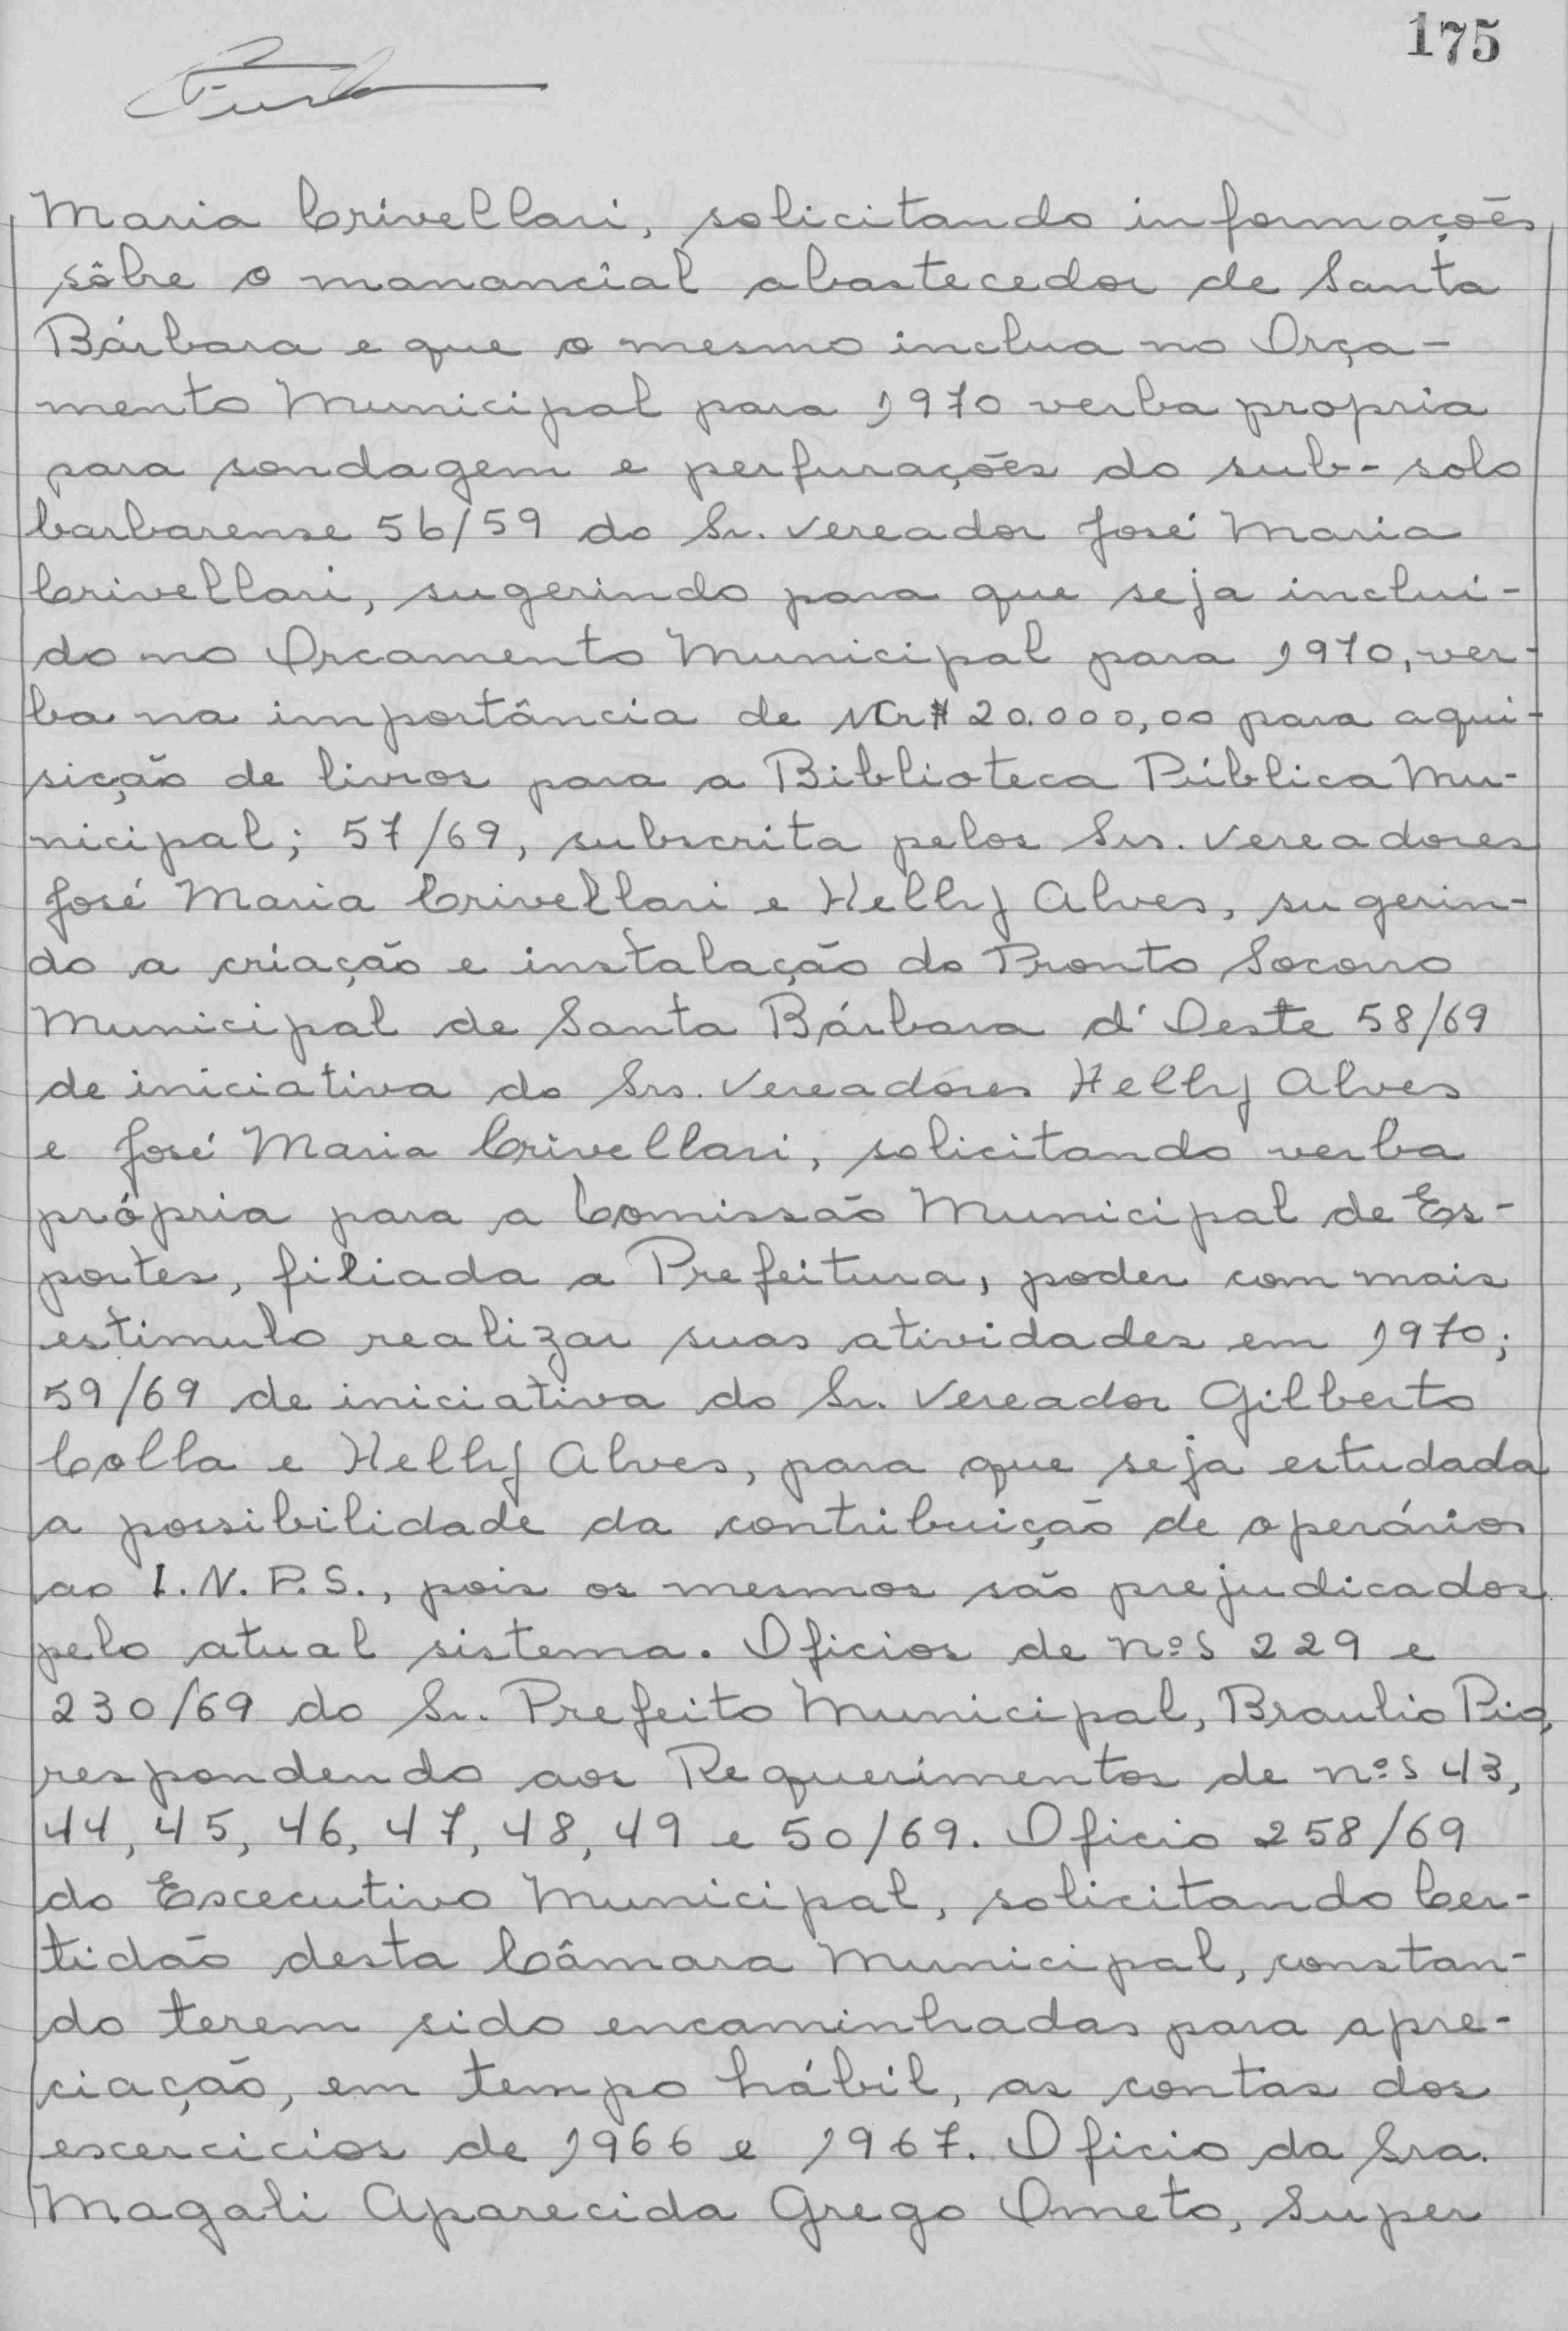 175
Maria Crivellari, solicitando informações
sôbre o manancial abastecedor de Santa
Bárbara e que o mesmo inclua no Orça-
mento Municipal para 1970 verba propria
para sondagem e perfurações do sub-solo
barbarense 56/59 do Sr. Vereador José Maria
Crivellari, sugerindo para que seja inclui-
do no Orcamento Municipal para 1970, ver-
ba na importância de NCr$ 20.000,00 para aqui-
sição de livros para a Biblioteca Pública Mu-
nicipal; 57/69, subscrita pelos Srs. Vereadores
José Maria Crivellari e Helly Alves, sugerin-
do a criação e instalação do Pronto Socorro
Municipal de Santa Bárbara d'Oeste 58/69
de iniciativa do Srs. Vereadores Helly Alves
e José Maria Crivellari, solicitando verba
própria para a Comissão Municipal de Es-
portes, filiada a Prefeitura, poder com mais
estimulo realizar suas atividades em 1970;
59/69 de iniciativa do Sr. Vereador Gilberto
Colla e Helly Alves, para que seja estudada
a possibilidade da contribuição de operários
ao I.N.P.S., pois os mesmos são prejudicados
pelo atual sistema. Oficios de nºs 229 e
230/69 do Sr. Prefeito Municipal, Braulio Pio,
respondendo aos Requerimentos de nºs 43,
44, 45, 46, 47, 48, 49 e 50/69. Oficio 258/69
do Escecutivo Municipal, solicitando Cer-
tidão desta Câmara Municipal, constan-
do terem sido encaminhadas para apre-
ciação, em tempo hábil, as contas dos
escercicios de 1966 e 1967. Oficio da Sra.
Magali Aparecida Grego Ometo, Super